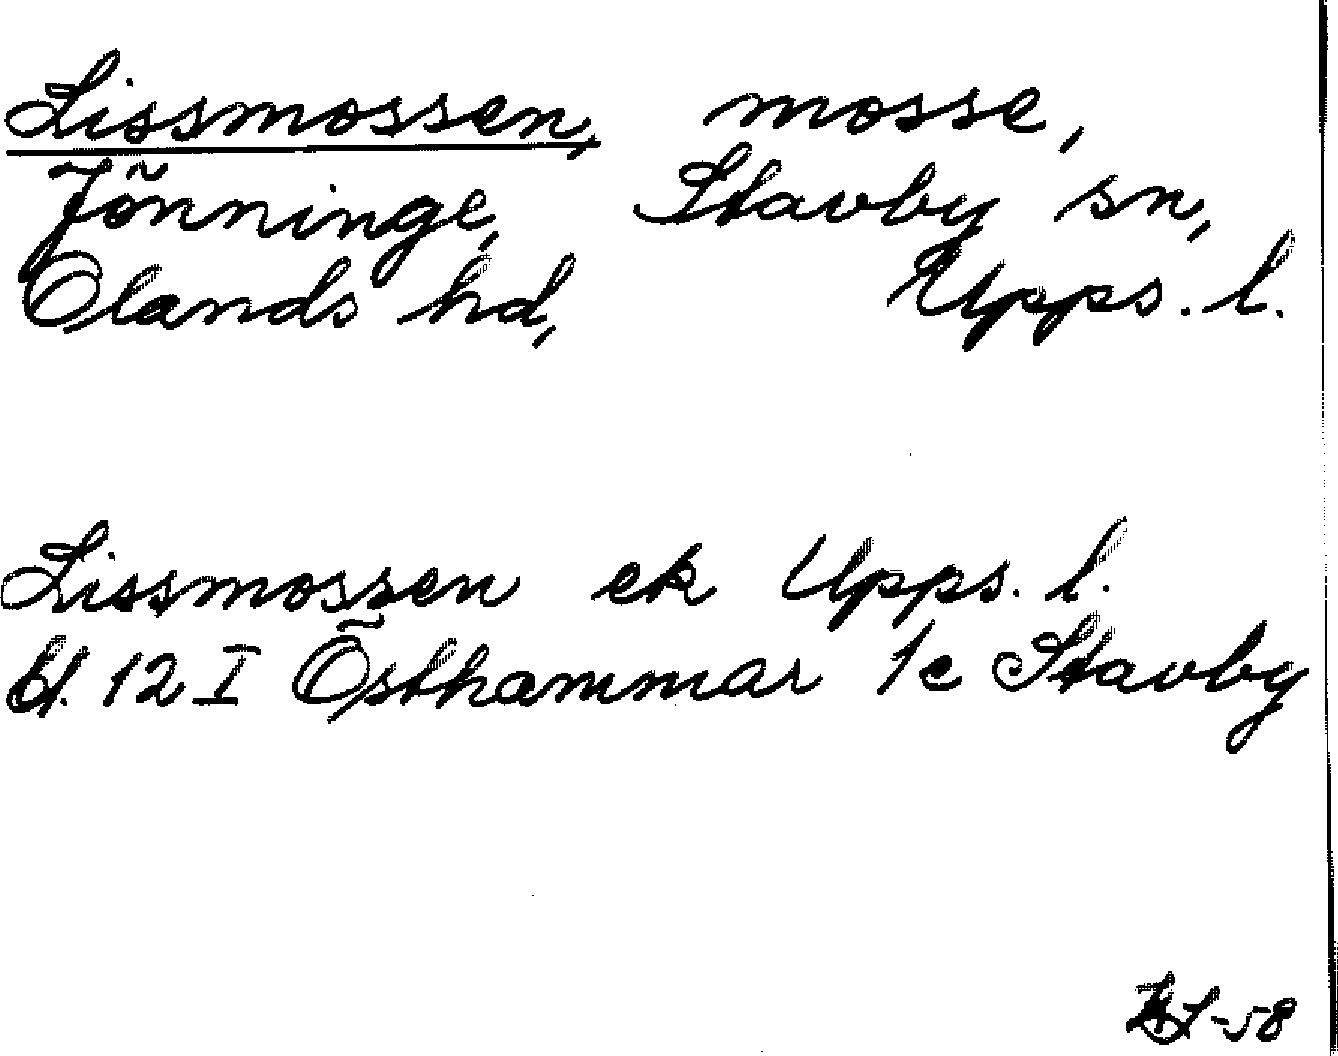 Lissmossen, mosse,
Jönninge, Stavby sn,
Olands hd, Upps. l.
Lissmossen ek Upps. l.
bl. 12 I Östhammar 1c Stavby
-58